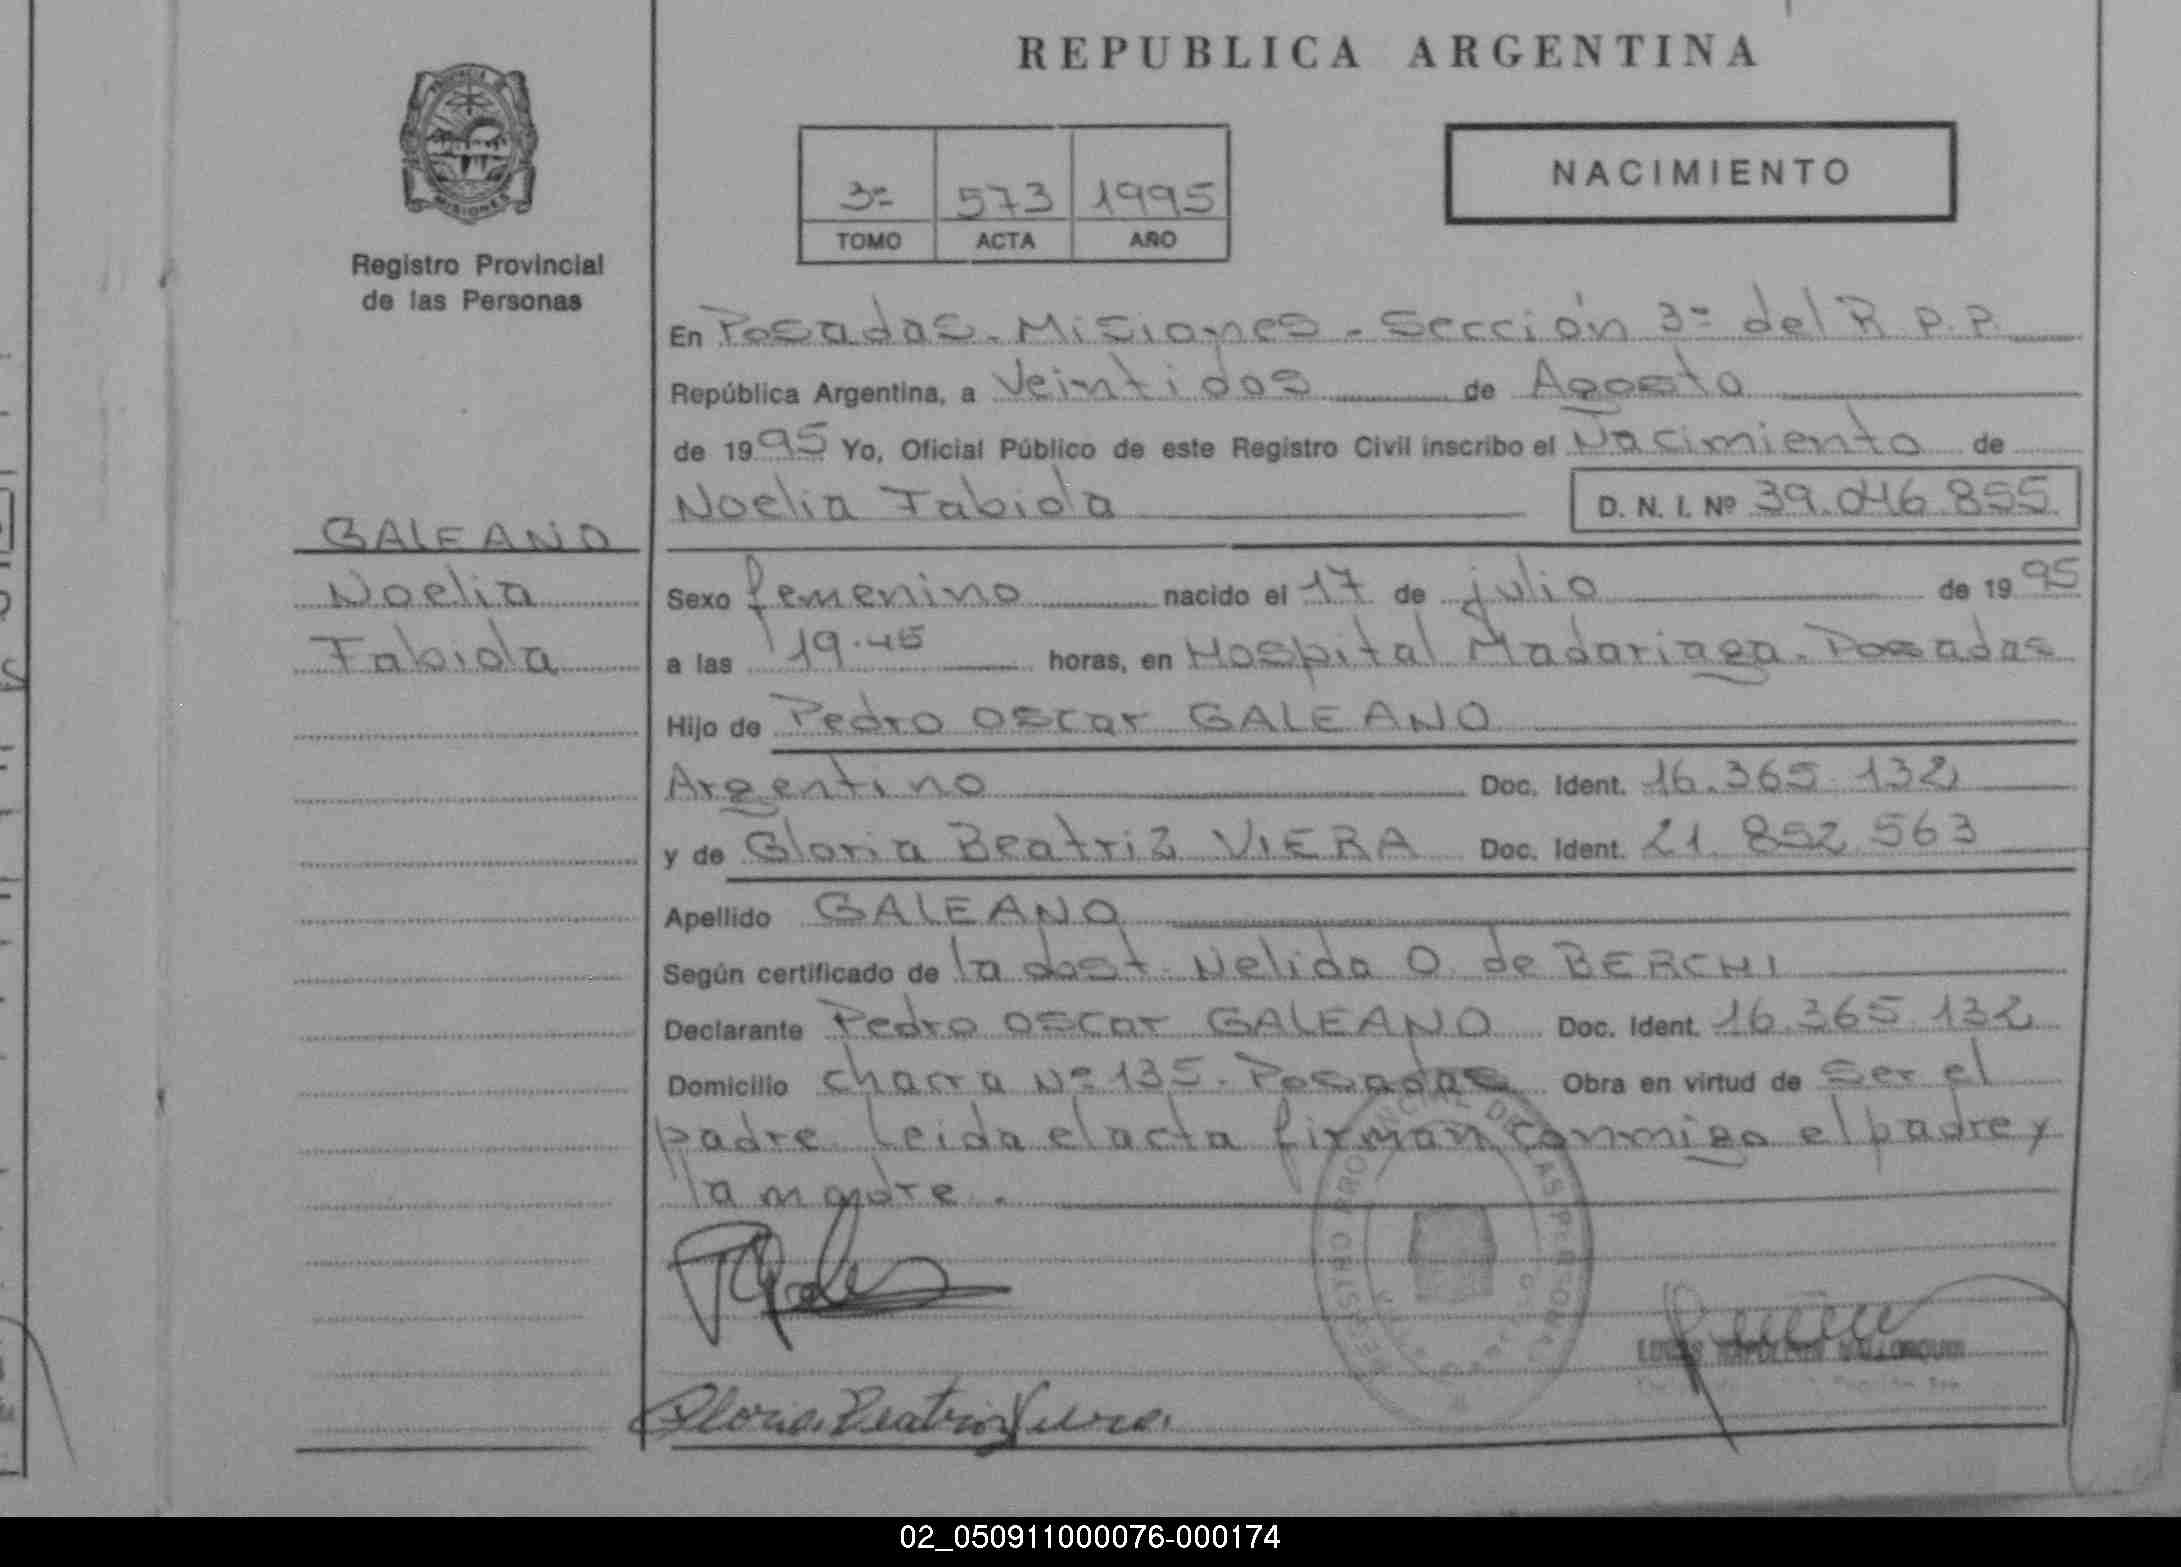 REPUBLICA ARGENTINA
PROVINCIA
MISIONES
Registro Provincial
de las Personas
3º 573 1995
TOMO ACTA AÑO
NACIMIENTO
En Posadas - Misiones - Sección 3º del R.P.P.
República Argentina, a Veintidos de Agosto
de 1995 Yo, Oficial Público de este Registro Civil inscribo el Nacimiento de
Noelia Fabiola D. N. I. Nº 39.046.855.
GALEANO
Noelia
Fabiola
Sexo femenino nacido el 17 de julio de 1995
a las 19.45 horas, en Hospital Madariaga. Posadas
Hijo de Pedro Oscar GALEANO
Argentino Doc. Ident. 16.365.132
y de Gloria Beatriz VIERA Doc. Ident. 21.852.563
Apellido GALEANO
Según certificado de la dost. Nelida O. de BERCHI
Declarante Pedro Oscar GALEANO Doc. Ident. 16.365.132
Domicilio chacra Nº 135. Posadas Obra en virtud de Ser el
padre. Leida el acta firman conmigo el padre y
la madre.
Gloria Beatriz Viera.
02_050911000076-000174